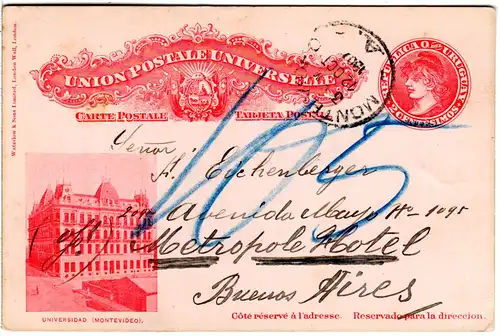 UNION POSTALE UNIVERSELLE
CARTE POSTALE
TARJETA POSTAL
REPUBLICA O. DEL URUGUAY
2 CENTESIMOS 2
MONTEVIDEO
Waterlow & Sons Limited, London Wall, London.
105
Senor
A. Eichenberger
Avenida Mayo No 1095
Metropole Hotel
Buenos Aires
UNIVERSIDAD (MONTEVIDEO).
Côté réservé à l'adresse. Reservado para la direccion.